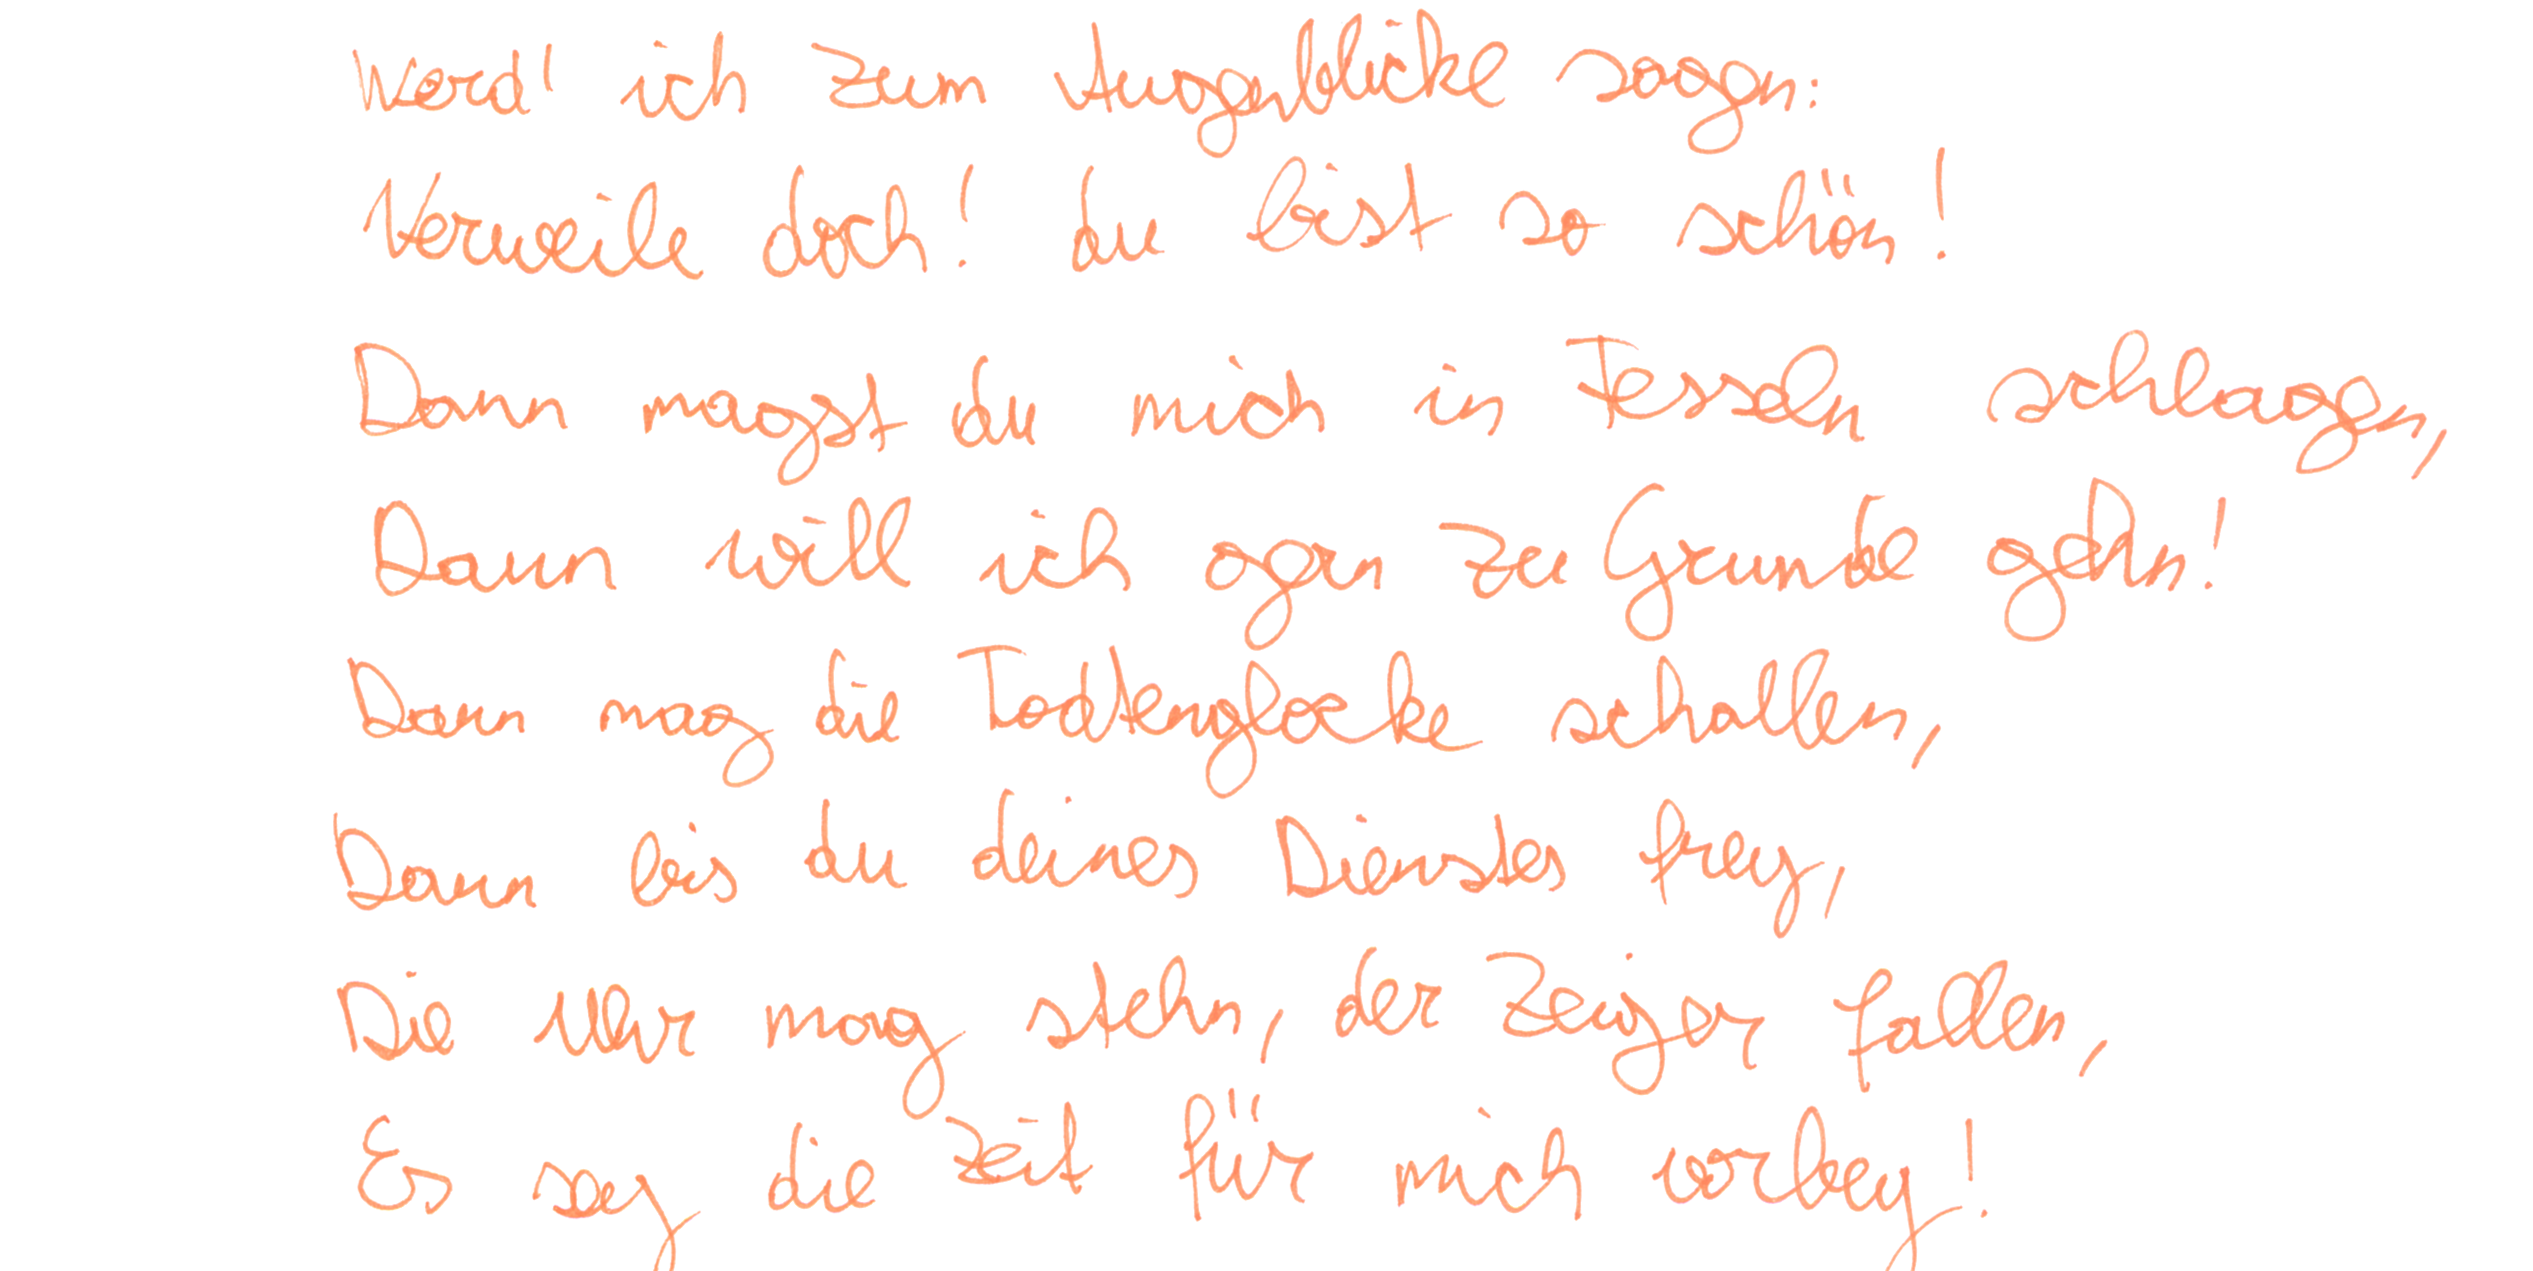 Werd' ich zum Augenblicke sagen:
Verweile doch! du bist so schön!
Dann magst du mich in Fesseln schlagen,
Dann will ich gern zu Grunde gehn!
Dann mag die Todtenglocke schallen,
Dann bis du deines Dienstes frey,
Die Uhr mag stehn, der Zeiger fallen,
Es sey die Zeit für mich vorbey!